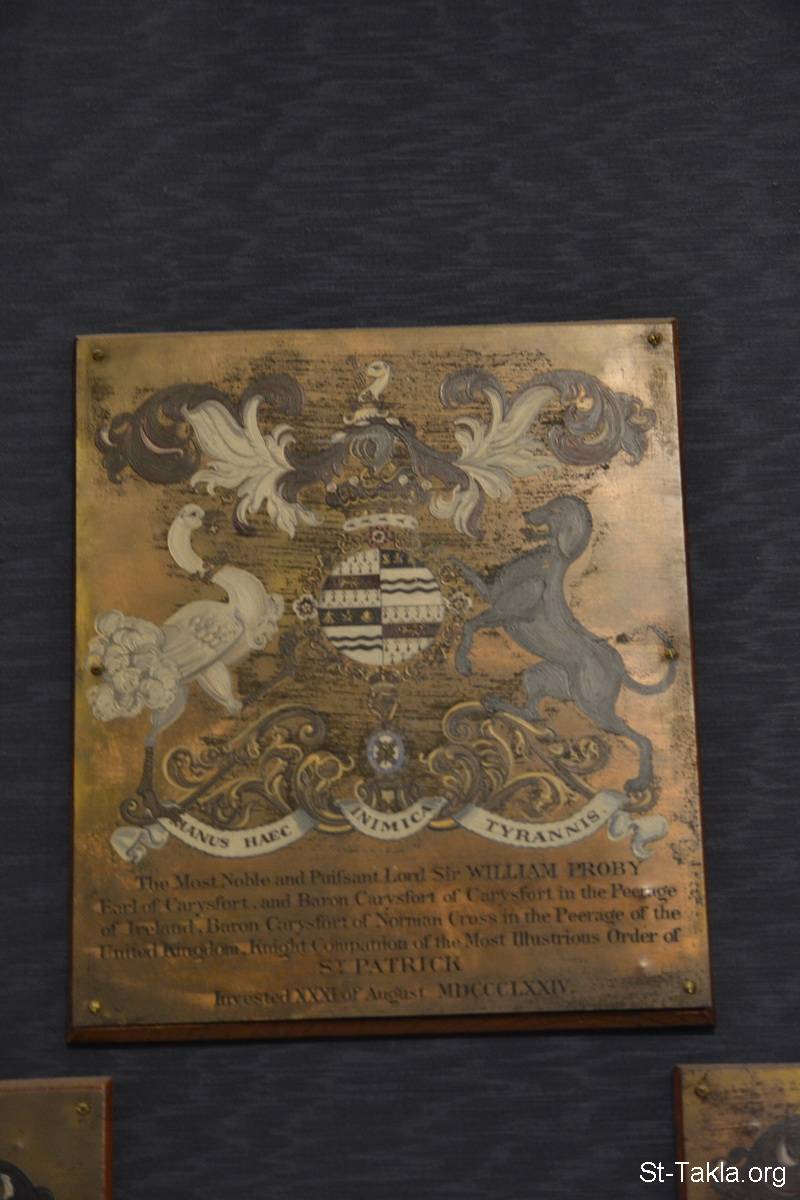 MANUS HAEC INIMICA TYRANNIS
The Most Noble and Puifsant Lord Sir WILLIAM PROBY
Earl of Carysfort, and Baron Carysfort of Carysfort in the Peerage
of Ireland, Baron Carysfort of Norman Cross in the Peerage of the
United Kingdom, Knight Companion of the Most Illustrious Order of
ST PATRICK
Invested XXXI of August MDCCCLXXIV.
St-Takla.org